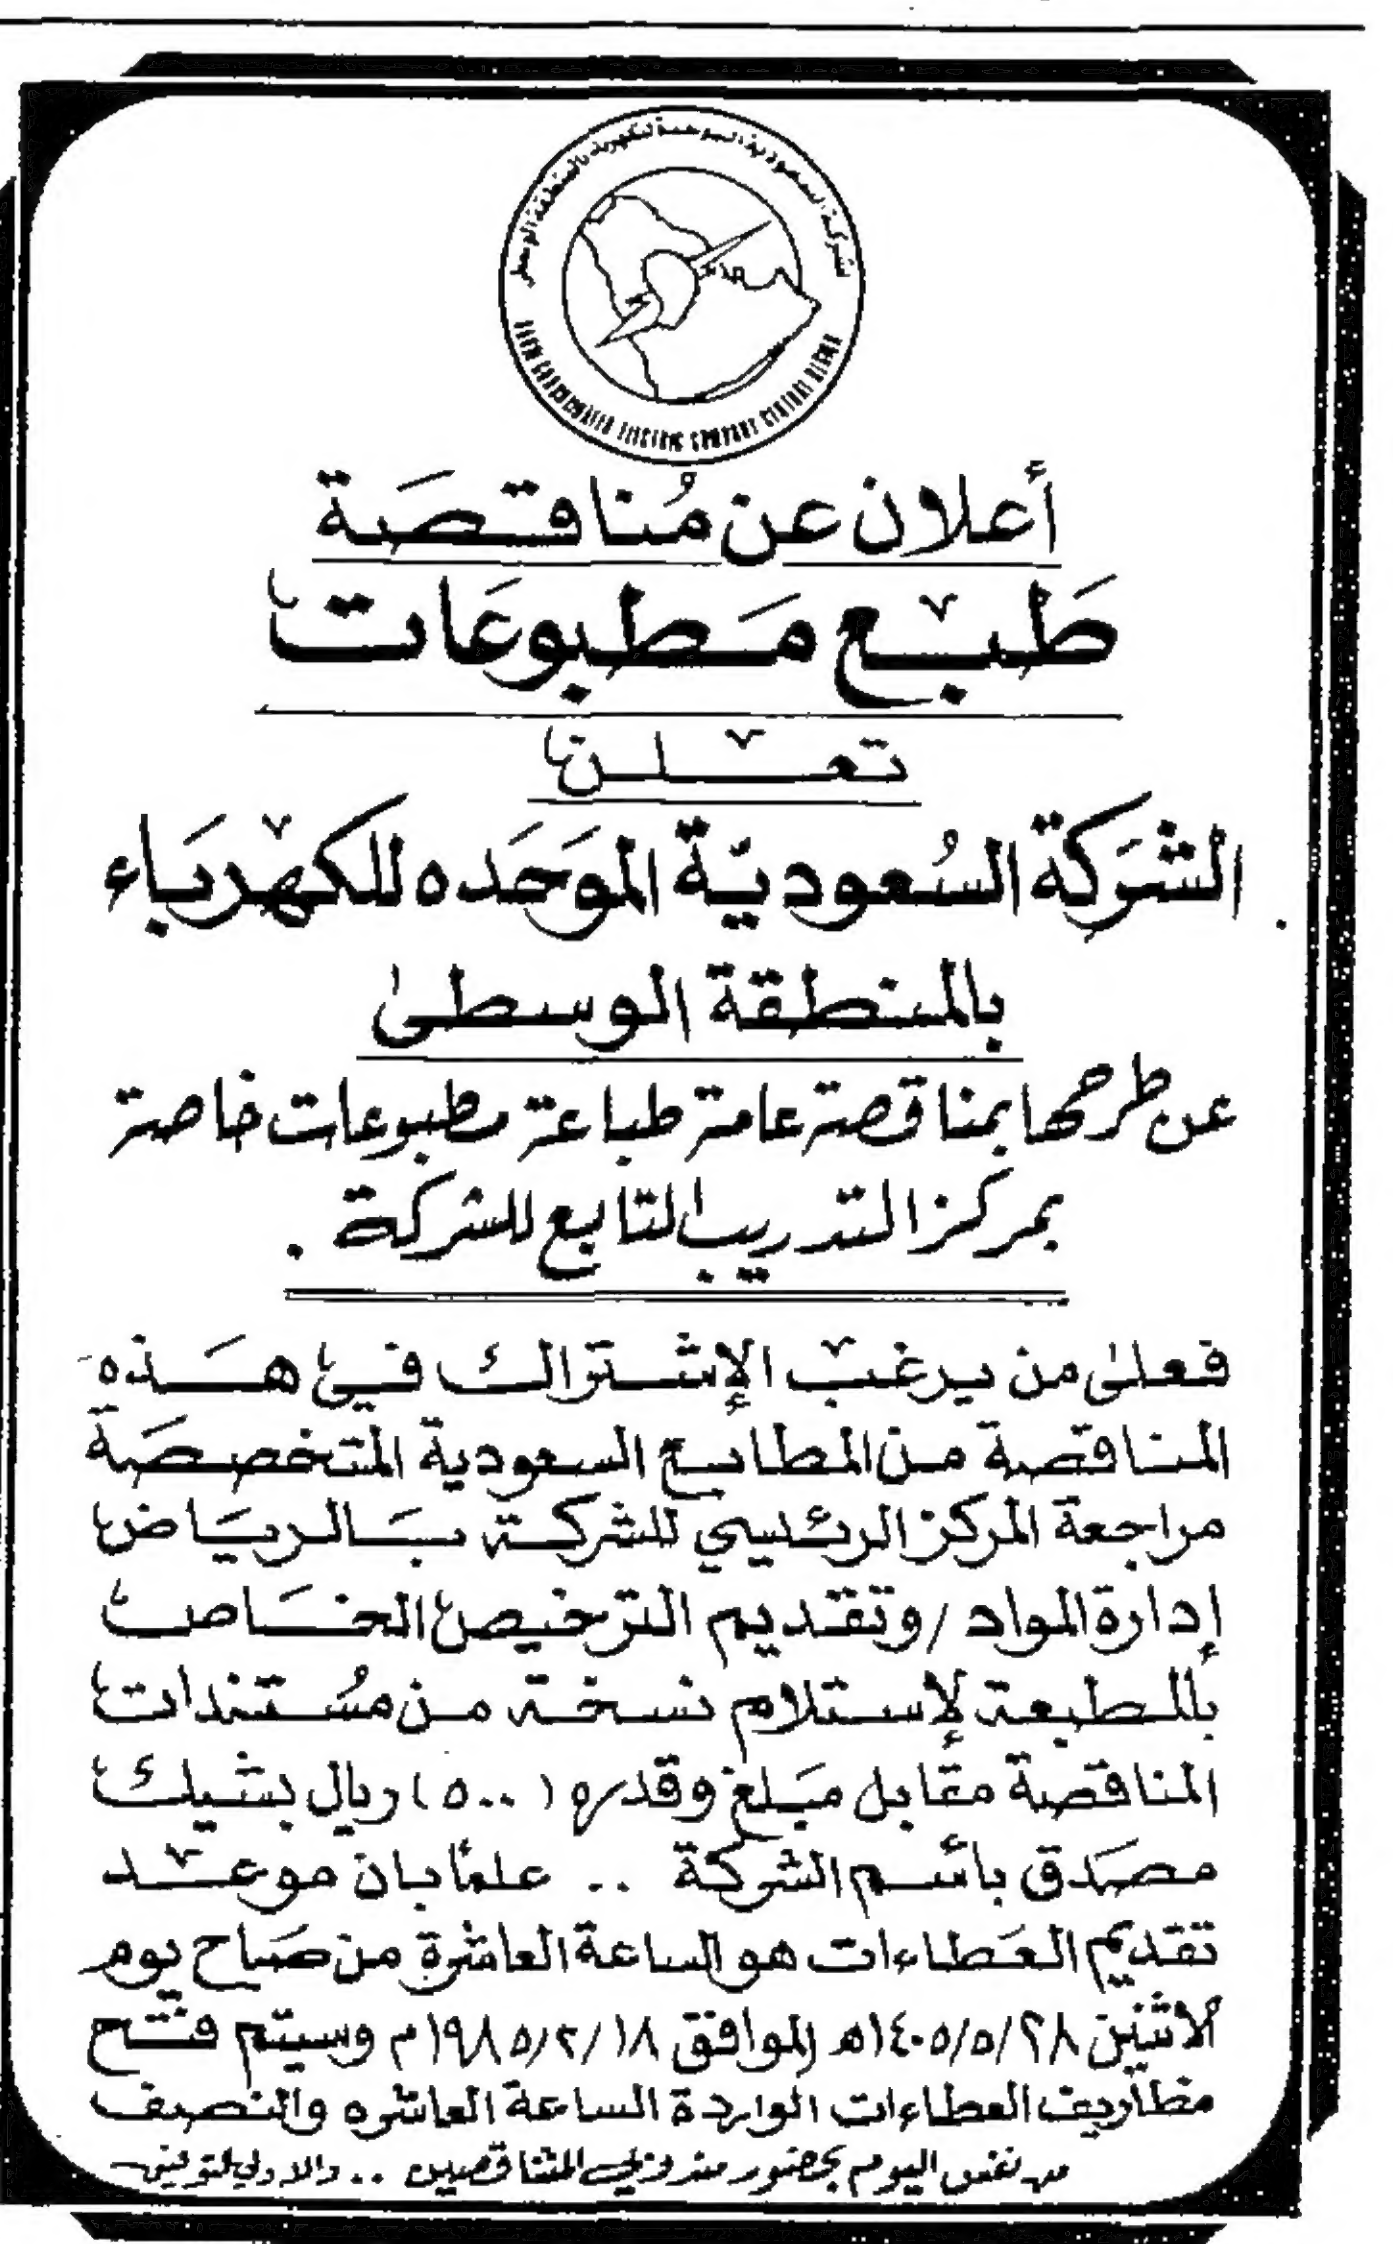 الشركة السعودية الموحدة للكهرباء بالمنطقة الوسطى
SAUDI CONSOLIDATED ELECTRIC COMPANY CENTRAL REGION
أعلان عن مُناقصَة
طَبع مَطبوعَات
تعلن
الشركَة السُعوديّة الموَحَده للكهربَاء
بالمنطقة الوسطى
عن طرحها بمناقصة عامة طباعة مطبوعات خاصة
بمركز التدريب التابع للشركة .
فعلى من يرغب الإشتراك في هَذه
المناقصة من المطابع السعودية المتخصصَة
مراجعة المركز الرئيسي للشركة بَالريَاض
إدارة المواد / وتقديم الترخيص الخَاص
بالمطبعة لإستلام نسخة من مُستندات
المناقصة مقابل مبَلغ وقدره (٥٠٠) ريال بشيك
مصَدق بأسم الشركة .. علماً بان موعد
تقديم العَطاءات هو الساعة العاشرة من صَباح يوم
الأثنين ١٤٠٥/٥/٢٨هـ الموافق ١٩٨٥/٢/١٨م وسيتم فتح
مظاريف العطاءات الواردة الساعة العاشره والنصف
من نفس اليوم بحضور مندوبي المتناقصين .. والله ولي التوفيق